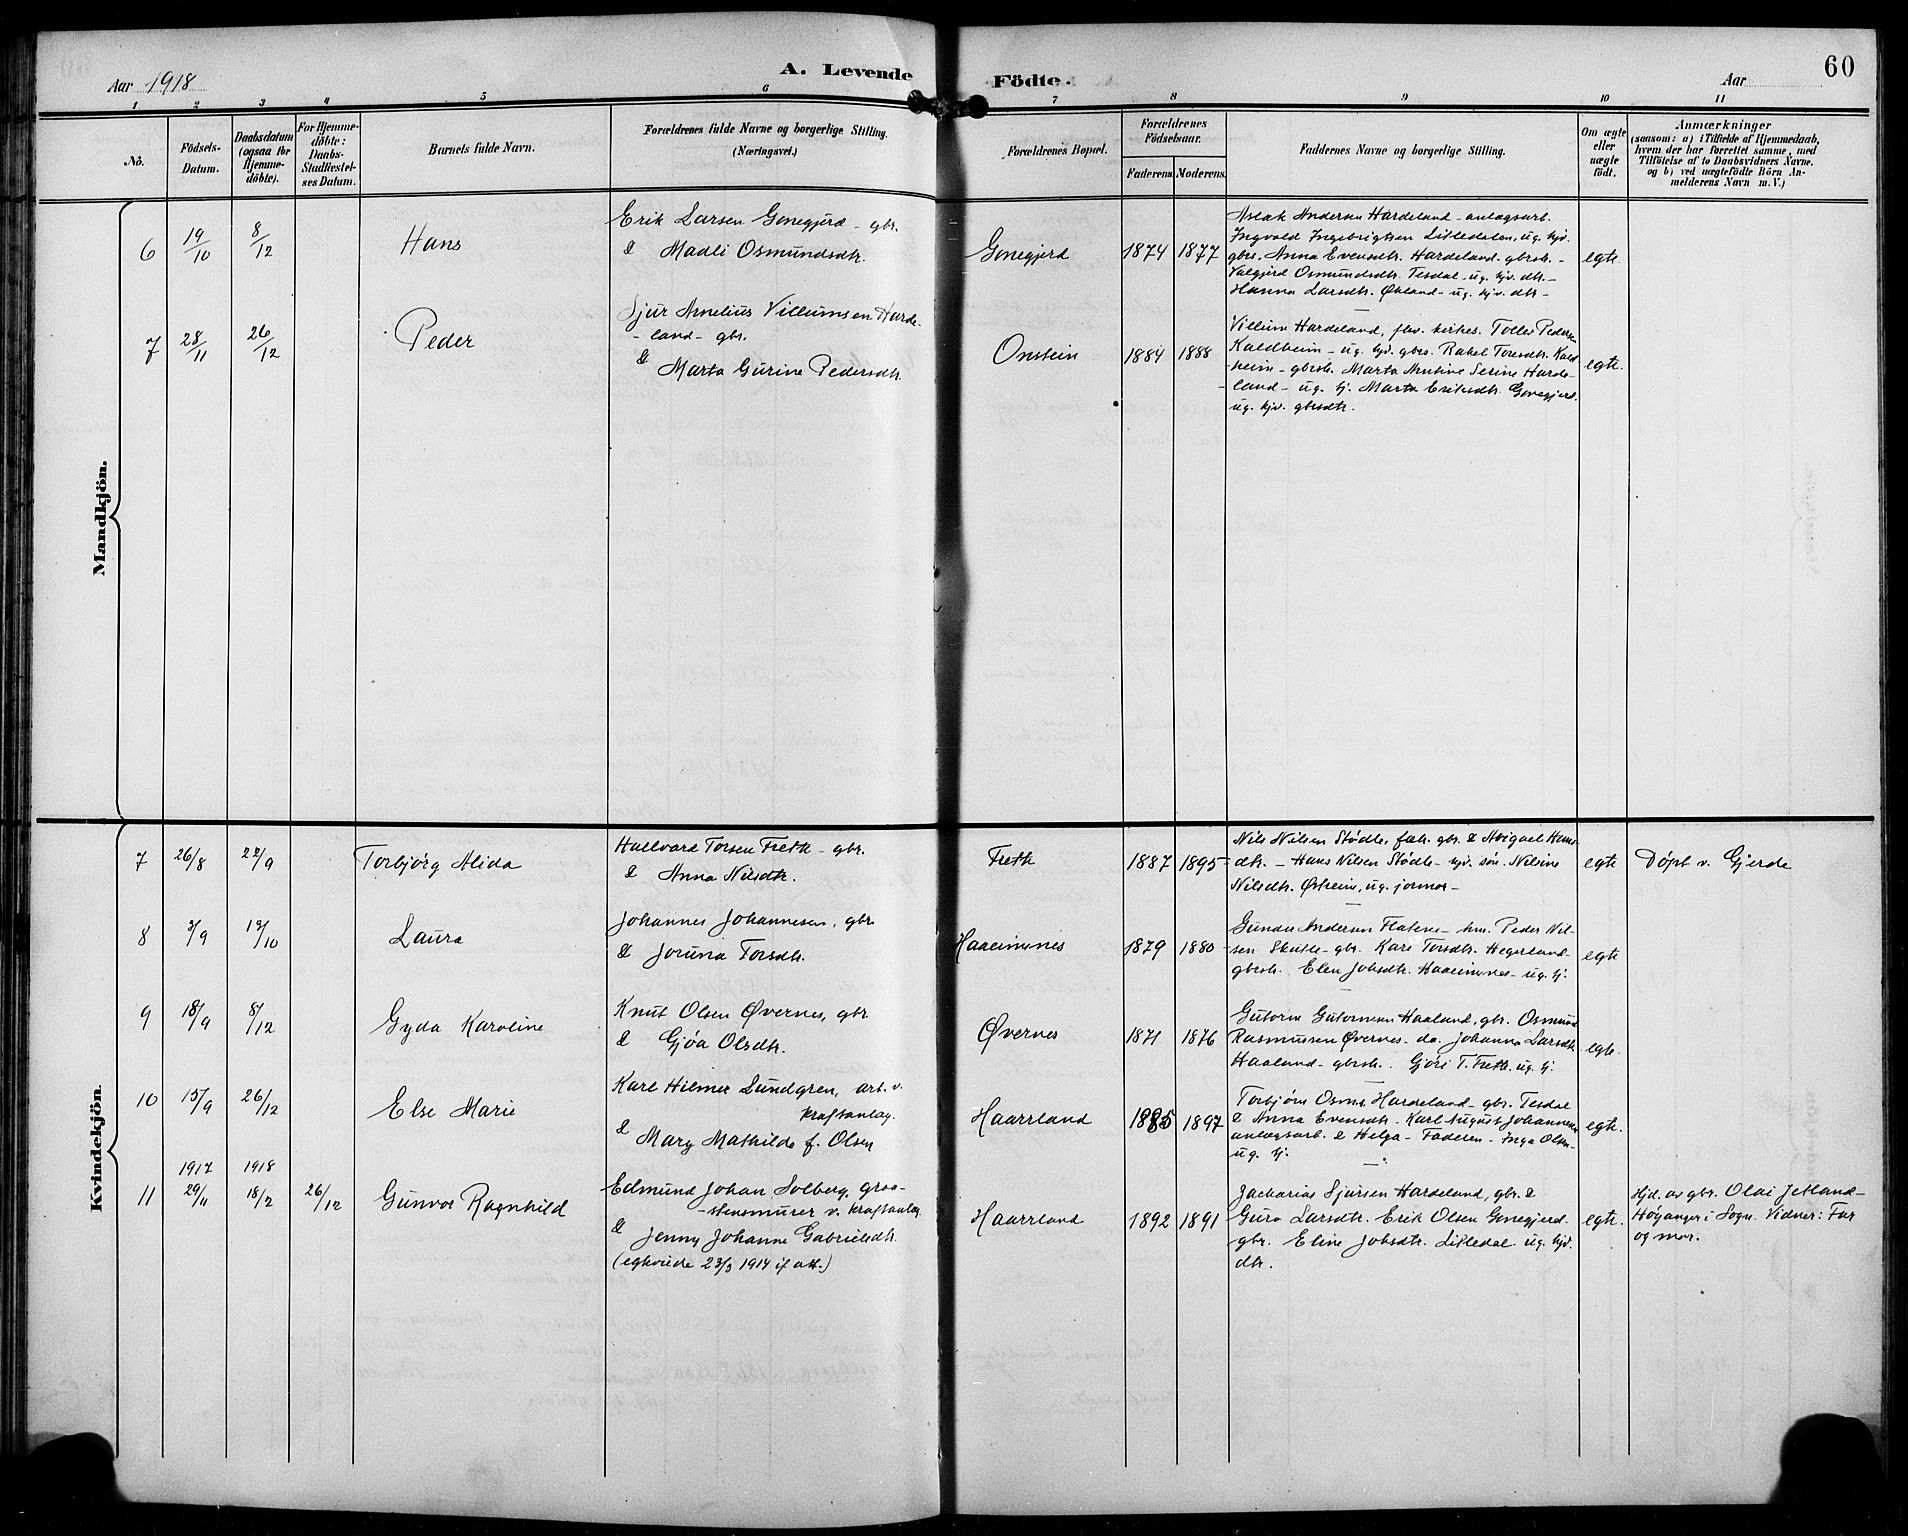 60
Aar 1918
A. Levende Födte.
Aar
1 2 3 4 5 6 7 8 9 10 11
No.
Födsels-
Datum.
Daabsdatum
(ogsaa for
Hjemme-
döbte).
For Hjemme-
döbte:
Daabs-
Stadfæstel-
ses Datum.
Barnets fulde Navn.
Forældrenes fulde Navne og borgerlige Stilling.
(Næringsvei.)
Forældrenes Bopæl.
Forældrenes
Födselsaar.
Faderens. Moderens.
Faddernes Navne og borgerlige Stilling.
Om ægte
eller
uægte
födt.
Anmærkninger
(saasom: a) i Tilfælde af Hjemmedaab,
hvem der har forrettet samme, med
Tilföielse af to Daabsvidners Navne.
og b) ved uægtefödte Börn An-
melderens Navn m. V.)
Mandkjön.
6
19/10
8/12
Hans
Erik Larsen Gonegjerd - gbr.
& Madli Osmundsdtr.
Gonegjerd
1874 1877
Aslak Andersen Hardeland - anlægsarb.
Ingvald Ingebrigtsen Litledalen, ug. hjv.
gbrs. Anna Evensdtr. Hardeland - gbrsk. -
Valgjerd Osmundsdtr. Tesdal - ug. hjv. dtr. -
Hanna Larsdtr. Økland - ug. hjv. dtr -
egte.
7
28/11
26/12
Peder
Sjur Arnelius Villumsen Harde-
- land - gbr.
& Marta Gurine Pedersdtr.
Onstein
1884 1888
Villum Hardeland, fhv. kirkes. Tollei Pedersen
Kaldheim - ug. hjv. gbrs. Rakel Toresdtr. Kald-
heim - gbrsk. Marta Arntine Serine Harde-
- land - ug. tj. Marta Eriksdtr. Gonegjerd.
ug. hjv. gbrsdtr.
egte.
Kvindekjön.
7
26/8
22/9
Torbjörg Alida
Hallvard Torsen Frette - gbr.
& Anna Nilsdtr.
Frette
1887 1895
Nils Nilsen Stødle, gbr. & Abigael Hans-
dtr. - Hans Nilsen Stødle - hjv. søn. Nilsine
Nilsdtr. Østheim, ug. jormor -
egte
Döpt v. Gjerde
8
3/9
13/10
Laura
Johannes Johannesen, gbr
& Joruna Torsdtr.
Haaeimnes
1879 1880
Gunder Andersen Flatene - hm. Peder Nil-
sen Skutle - gbr. Kari Torsdtr. Hegerland -
gbrsk. Elen Johsdtr. Haaeimnes - ug. tj.
egte
9
18/9
8/12
Gyda Karoline
Knut Olsen Øvernes, gbr
& Gjøa Olsdtr.
Øvernes
1871 1876
Gutorm Gutormsen Haaland, gbr. Osmund
Rasmussen Øvernes - do. Johanna Larsdtr.
Haaland - gbrsk. Gjöri T. Frette ug. tj.
egte.
10
15/9
26/12
Else Marie
Karl Hilmer Lundgren, arb. v.
kraftanlæg.
& Mary Mathilde f. Olsen
Haarrland
1885 1897
Torbjörn Osms. Hardeland - gbr. Tesdal
& Anna Evensdtr - Karl August Johannesen
anlægsarb. & Helga - Faderen - Inga Olsen
ug. tj.
egte.
11
1917
29/11
1918
18/2
26/12
Gunvor Ragnhild
Edmund Johan Solberg, graa-
- stensmurer v. kraftanlæg.
& Jenny Johanne Gabrielsdtr.
(egteviede 23/3 1914 if att.)
Haarrland
1892 1891
Zacharias Sjursen Hardeland, gbr. &
Guro Larsdtr. Erik Olsen Gonegjerd.
gbr. Eline Johsdtr. Litledal - ug. hjv.
dtr.
egte.
Hjd. av gbr. Olai Jetland -
Höyanger i Sogn. Vidner: Far
og mor.